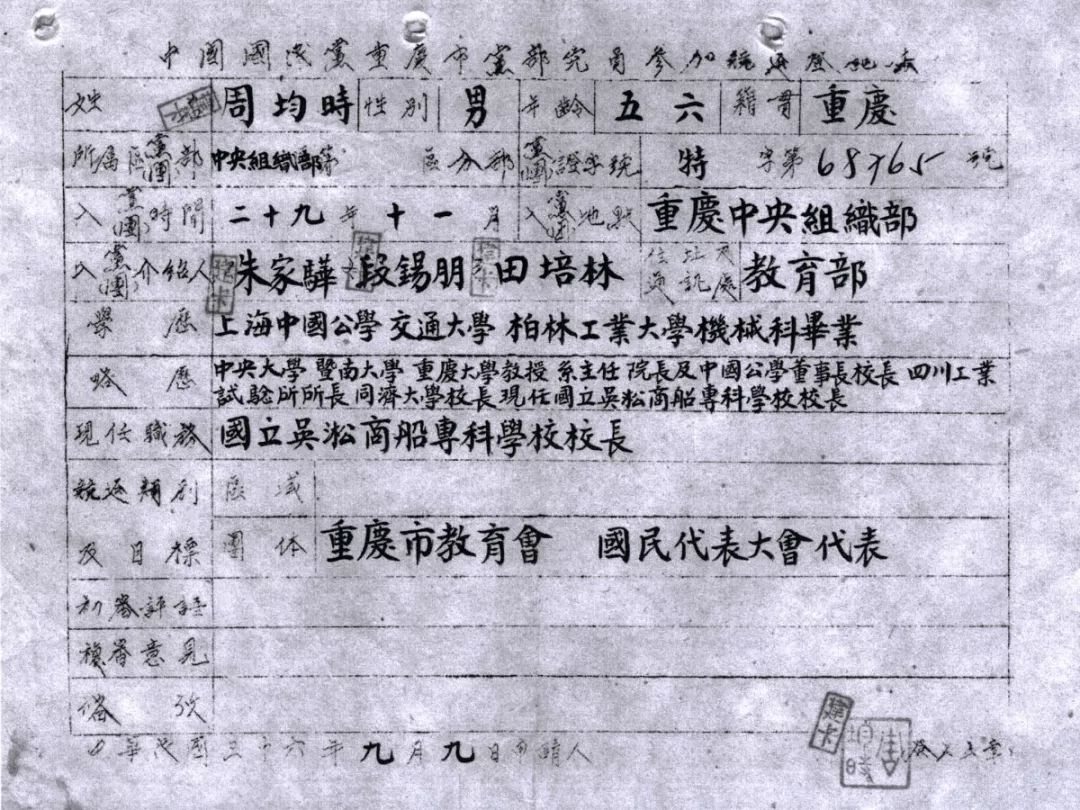 中国國民黨重慶市黨部党員参加競選登記表
姓名 周均時 性別 男 年齡 五六 籍貫 重慶
所属區黨(團)部 中央組織部第 區分部 黨(團)證字號 特 字第68765號
入黨(團)時間 二十九年十一月 入黨(團)地點 重慶中央組織部
入黨(團)介紹人 朱家驊 段錫朋 田培林 住址及通訊處 教育部
學歷 上海中國公學 交通大學 柏林工業大學機械科畢業
略歷 中央大學 暨南大學 重慶大學教授 系主任 院長及中國公學董事長校長 四川工業
試驗所所長 同濟大學校長 現任國立吳淞商船專科學校校長
現任職務 國立吳淞商船專科學校校長
競選類別 區域
及目標 團体 重慶市教育會 國民代表大會代表
初審評語
複審意見
備攷
建卡
中華民國三十六年九月九日申請人 周均時 簽名蓋章